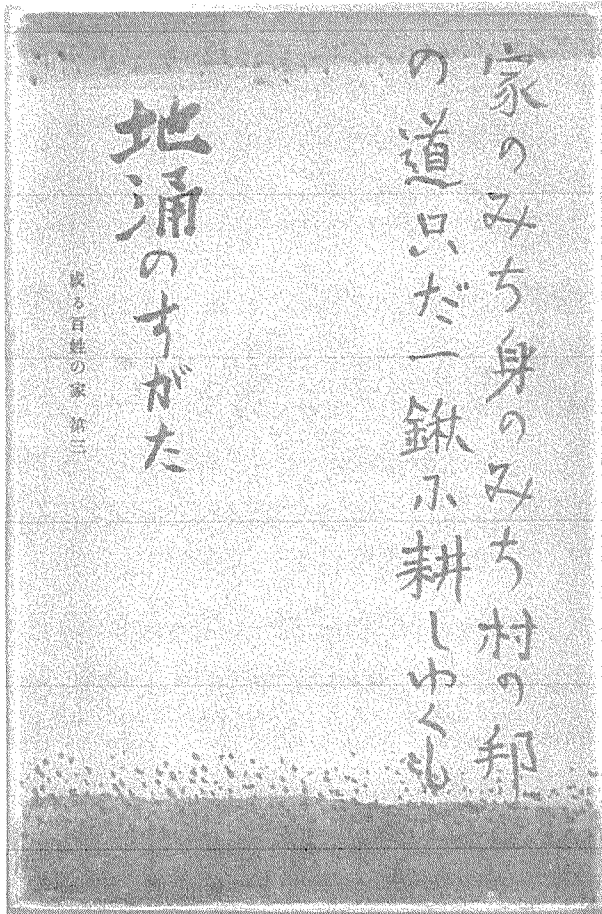 家のみち身のみち村の邦
の道只だ一鍬に耕しゆくも
地涌のすがた
或る百姓の家 第三